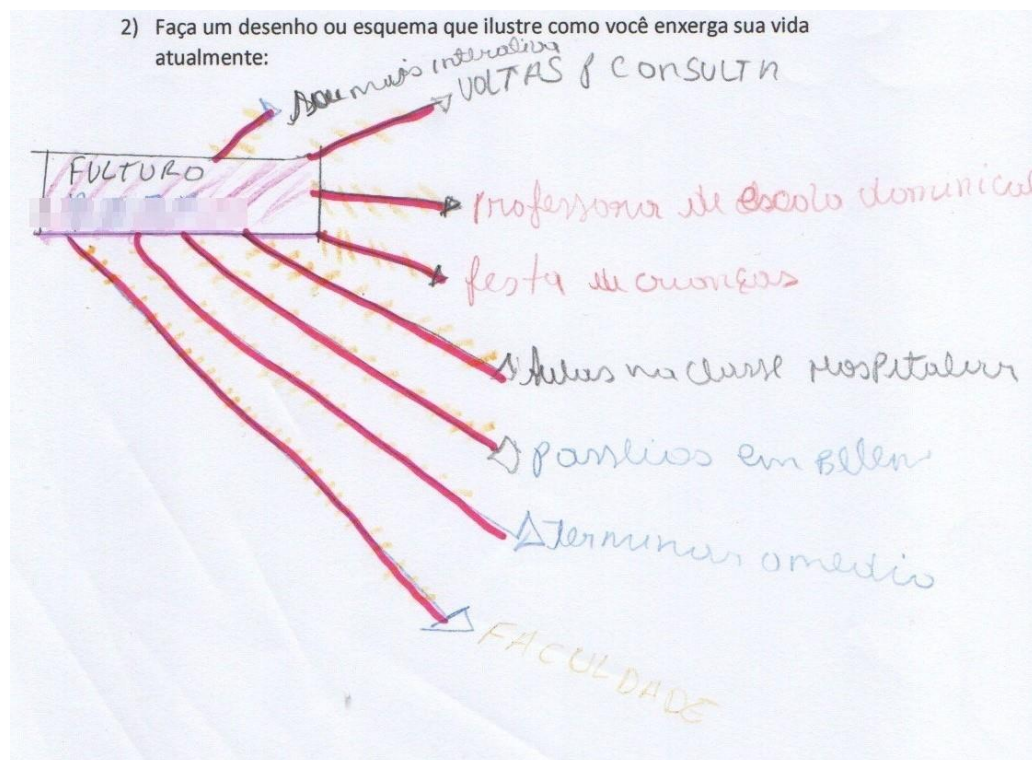 2) Faça um desenho ou esquema que ilustre como você enxerga sua vida
atualmente:
Sou mais interativa
VOLTAS P CONSULTA
FULTURO
professora de escola dominical
festa de crianças
Aulas na classe Hospitalar
passeios em Belem
terminar o medio
FACULDADE